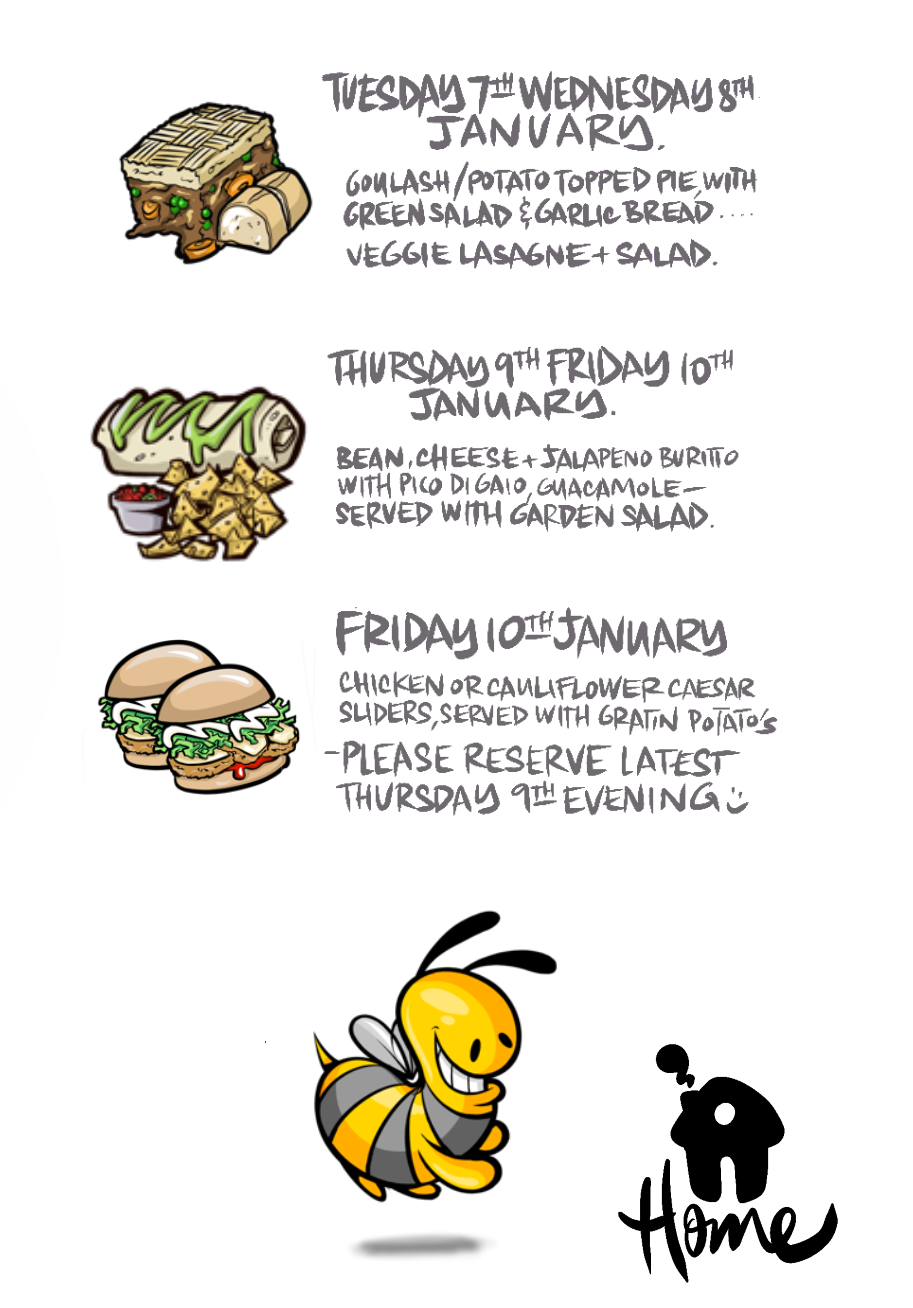 TUESDAY 7TH WEDNESDAY 8TH
JANUARY.
GOULASH/POTATO TOPPED PIE, WITH
GREEN SALAD & GARLIC BREAD ....
VEGGIE LASAGNE + SALAD.
THURSDAY 9TH FRIDAY 10TH
JANUARY.
BEAN, CHEESE + JALAPENO BURITTO
WITH PICO DI GAIO, GUACAMOLE —
SERVED WITH GARDEN SALAD.
FRIDAY 10TH JANUARY
CHICKEN OR CAULIFLOWER CAESAR
SLIDERS, SERVED WITH GRATIN POTATO'S
- PLEASE RESERVE LATEST
THURSDAY 9TH EVENING
Home